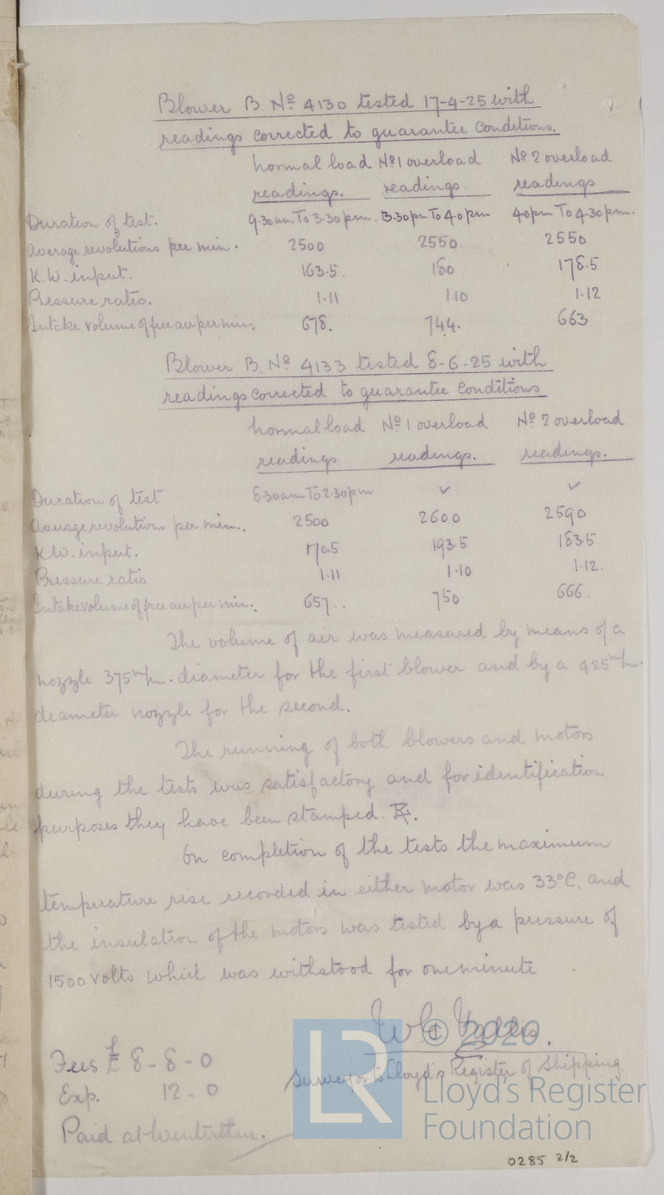 Blower B. No 4130 tested 17-4-25 with
readings corrected to guarantee conditions.
normal load No 1 overload No 2 overload
readings. readings. readings
Duration of test. 9.30am To 3.30pm. 3.30pm To 4.0pm 4.0pm To 4.30pm.
Average revolutions per min. 2500 2550 2550
K.W. input. 163.5. 180 178.5
Pressure ratio. 1.11 1.10 1.12
Intake volume of free air per min. 678. 744. 663
Blower B. No 4133 tested 8-6-25 with
readings corrected to guarantee conditions
normal load No 1 overload No 2 overload
readings readings. readings.
Duration of test 6.30am To 2.30pm ✓ ✓
Average revolutions per min. 2500 2600 2590
K.W. input. 170.5 193.5 183.5
Pressure ratio 1.11 1.10 1.12.
Intake volume of free air per min. 657.. 750 666.
The volume of air was measured by means of a
nozzle 375 m/m. diameter for the first blower and by a 425 m/m.
diameter nozzle for the second.
The running of both blowers and motors
during the tests was satisfactory and for identification
purposes they have been stamped.
On completion of the tests the maximum
temperature rise recorded in either motor was 33°C, and
the insulation of the motors was tested by a pressure of
1500 volts which was withstood for one minute.
© 2020
Fees £ 8-8-0
Surveyor to Lloyd's Register of Shipping
Exp. 12-0
Lloyd's Register
Foundation
Paid at Winterthur.
0285 2/2